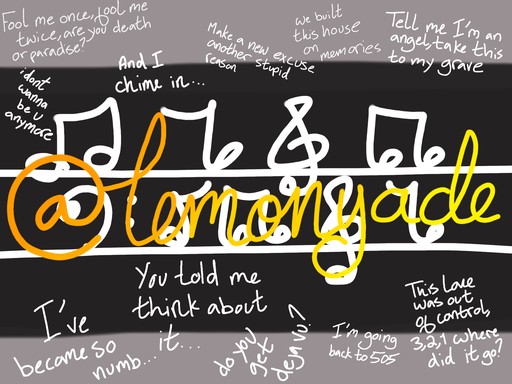 Fool me once, fool me
twice, are you death
or paradise?
And I
chime in...
Make a new excuse
another stupid
reason
we built
this house
on memories
Tell me I'm an
angel, take this
to my grave
i dont
wanna
be u
anymore
@lemonyade
I've
become so
numb...
You told me
think about
it...
do you
get
deja vu?
I'm going
back to 505
This love
was out
of control,
3,2,1 where
did it go?